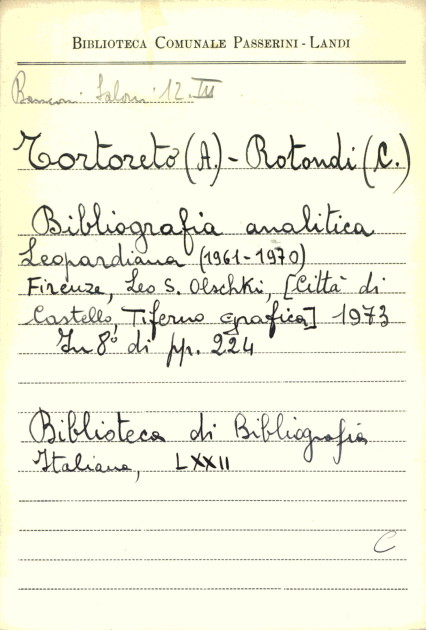 BIBLIOTECA COMUNALE PASSERINI - LANDI
Banconi Salom 12. III
Tortoreto (A.) - Rotondi (C.)
Bibliografia analitica
Leopardiana (1961-1970)
Firenze, Leo S. Olschki, [Città di
Castello, Tiferno grafica] 1973
In 8° di pp. 224
Biblioteca di Bibliografia
Italiana, LXXII
C